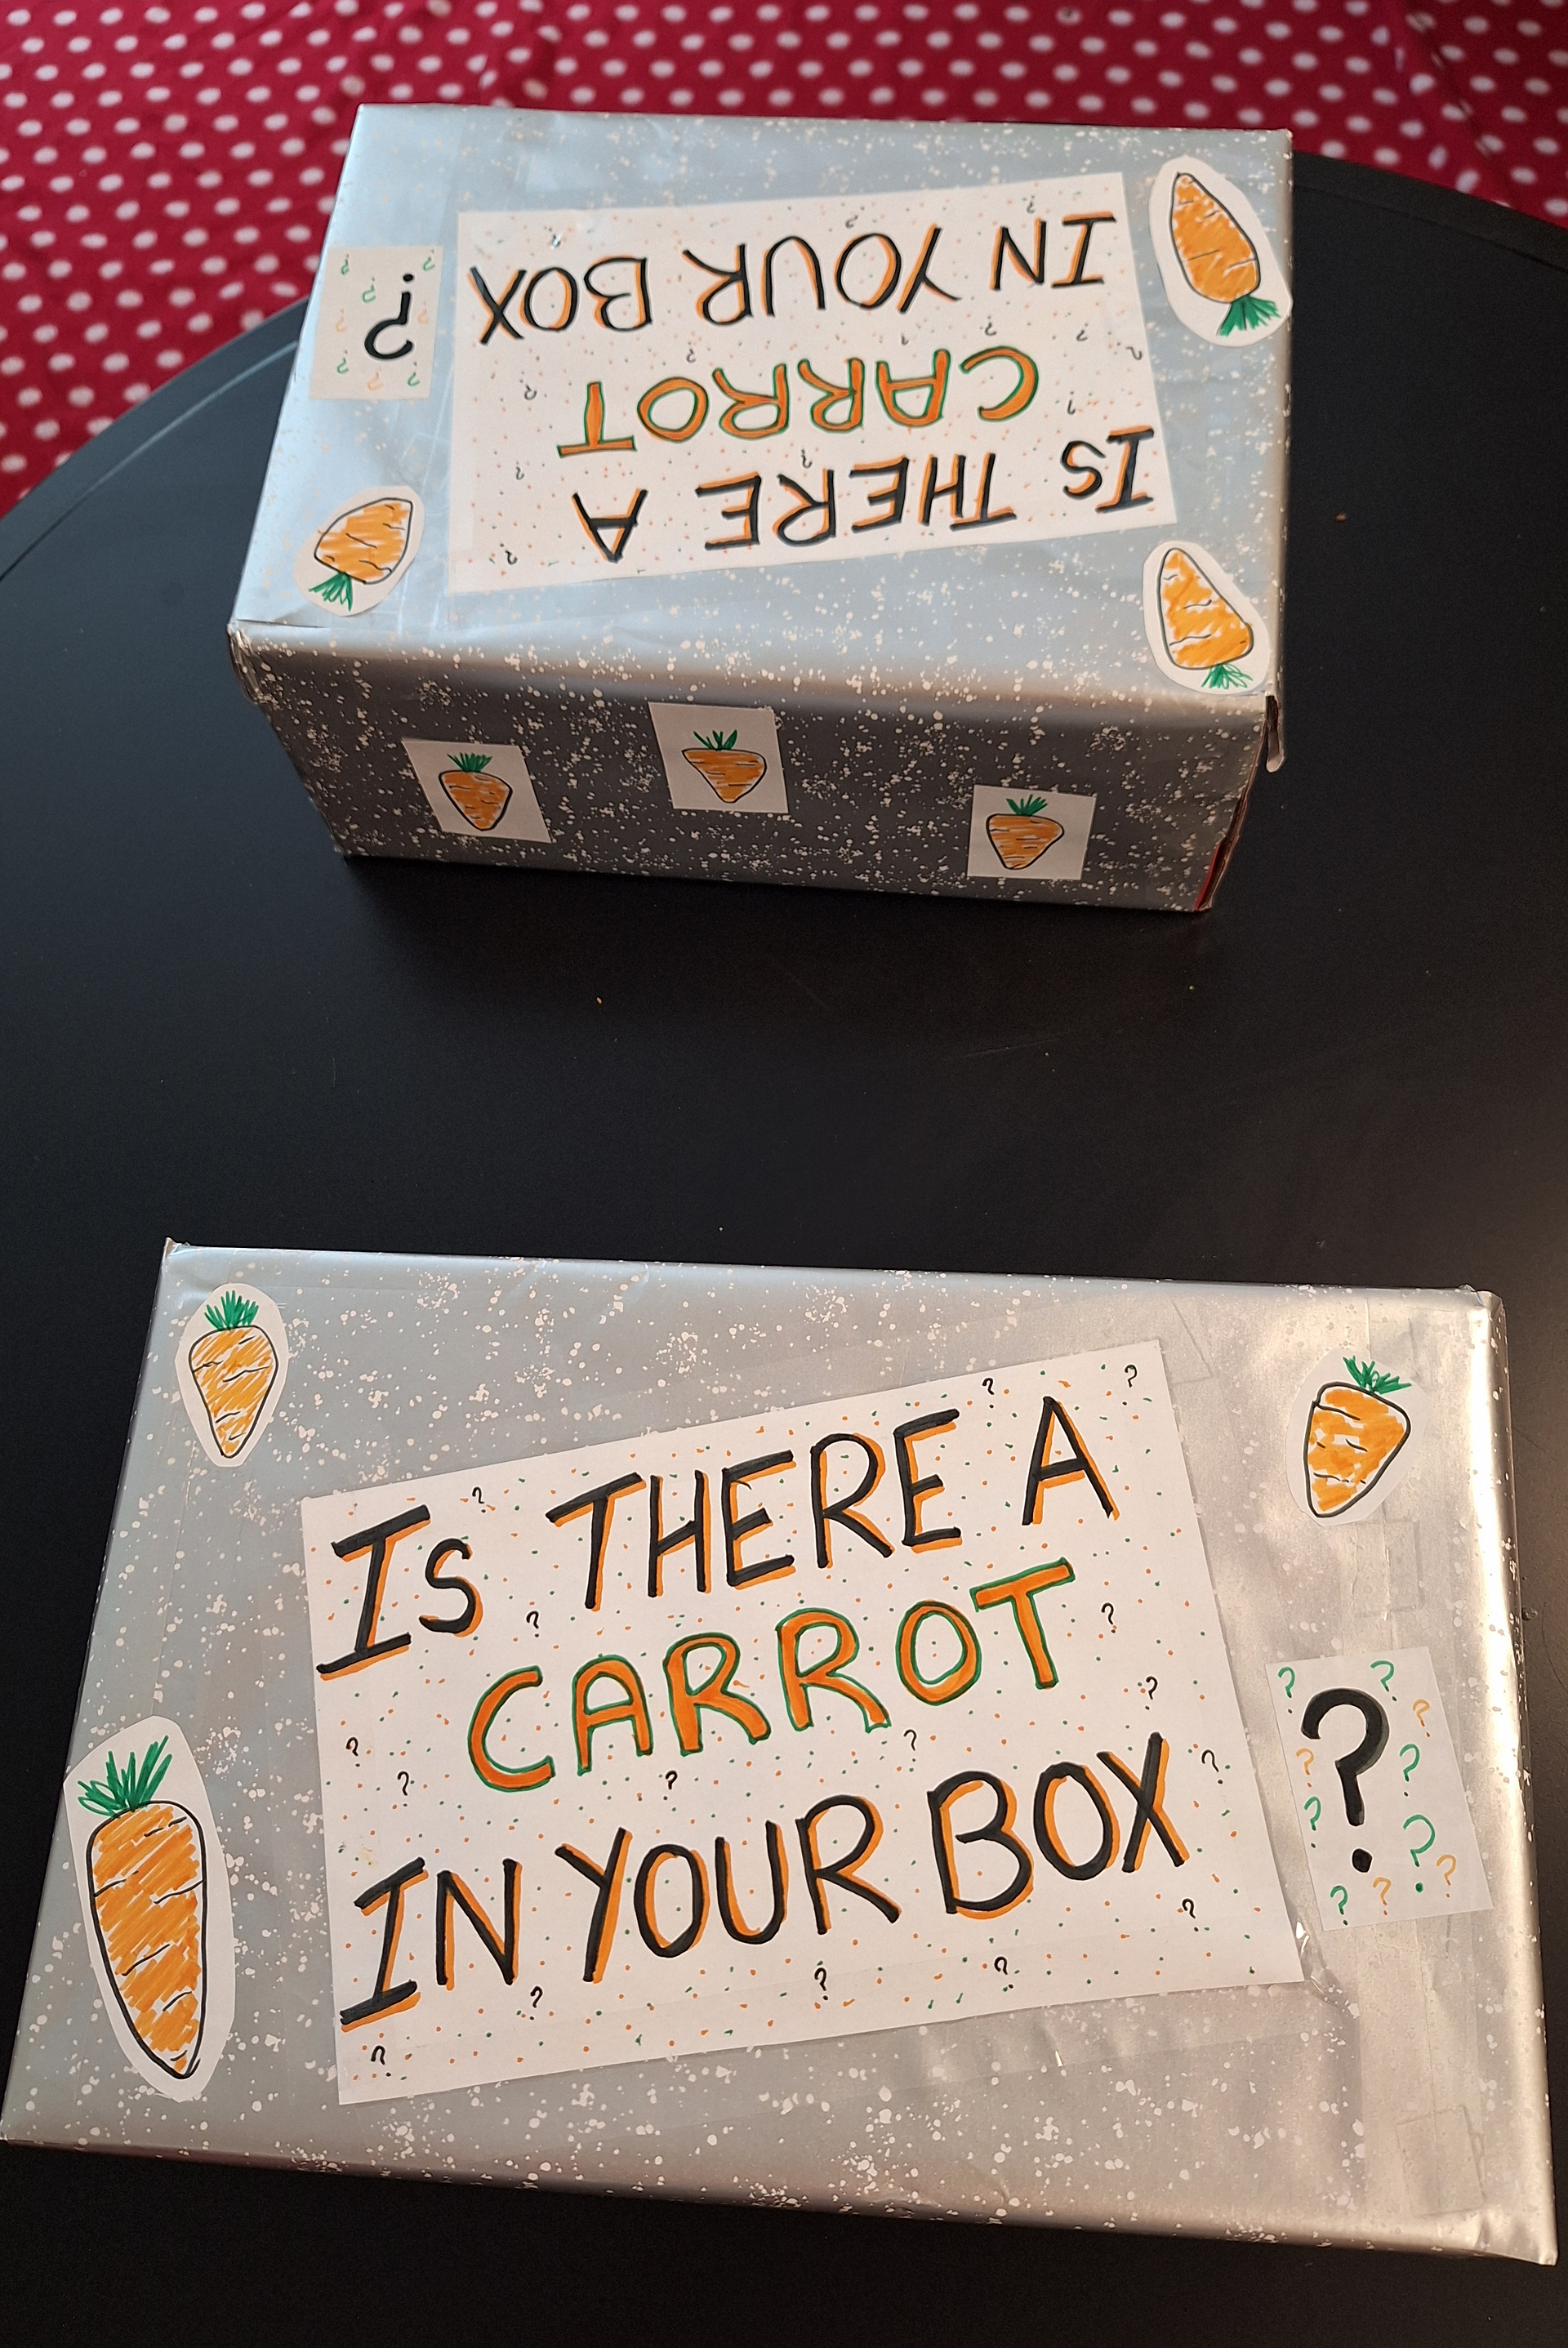 IS THERE A
CARROT
IN YOUR BOX
?
IS THERE A
CARROT
IN YOUR BOX
?